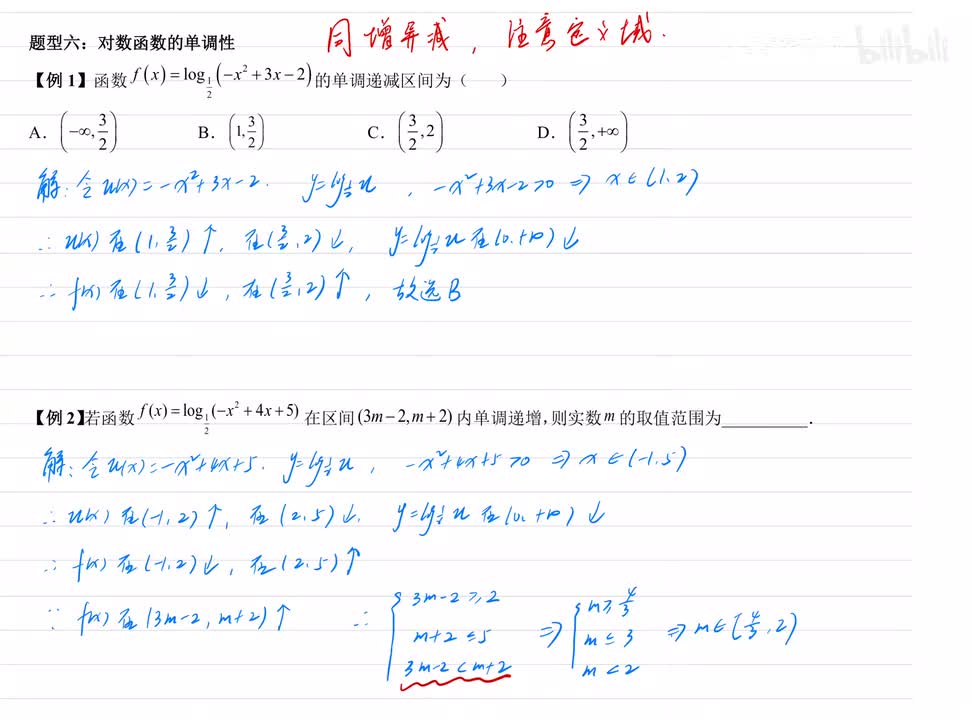 同增异减，注意定义域.
题型六：对数函数的单调性
bilibili
【例1】函数 f(x)=log_{1/2}(-x²+3x-2) 的单调递减区间为（ ）
A. (-∞, 3/2) B. (1, 3/2) C. (3/2, 2) D. (3/2, +∞)
解: 令u(x)=-x²+3x-2. y=log_{1/2}u , -x²+3x-2>0 ⇒ x∈(1,2)
∴ u(x) 在(1, 3/2)↑, 在(3/2, 2)↓, y=log_{1/2}u 在(0,+∞)↓
∴ f(x) 在(1, 3/2)↓, 在(3/2, 2)↑, 故选B
【例2】若函数 f(x)=log_{1/2}(-x²+4x+5) 在区间(3m-2, m+2) 内单调递增,则实数 m 的取值范围为__________.
解: 令u(x)=-x²+4x+5. y=log_{1/2}u , -x²+4x+5>0 ⇒ x∈(-1,5)
∴ u(x) 在(-1,2)↑, 在(2,5)↓. y=log_{1/2}u 在(0,+∞)↓
∴ f(x) 在(-1,2)↓, 在(2,5)↑
∵ f(x)在(3m-2, m+2)↑ ∴ { 3m-2≥2 m+2≤5 3m-2<m+2 ⇒ { m≥4/3 m≤3 m<2 ⇒ m∈[4/3, 2)